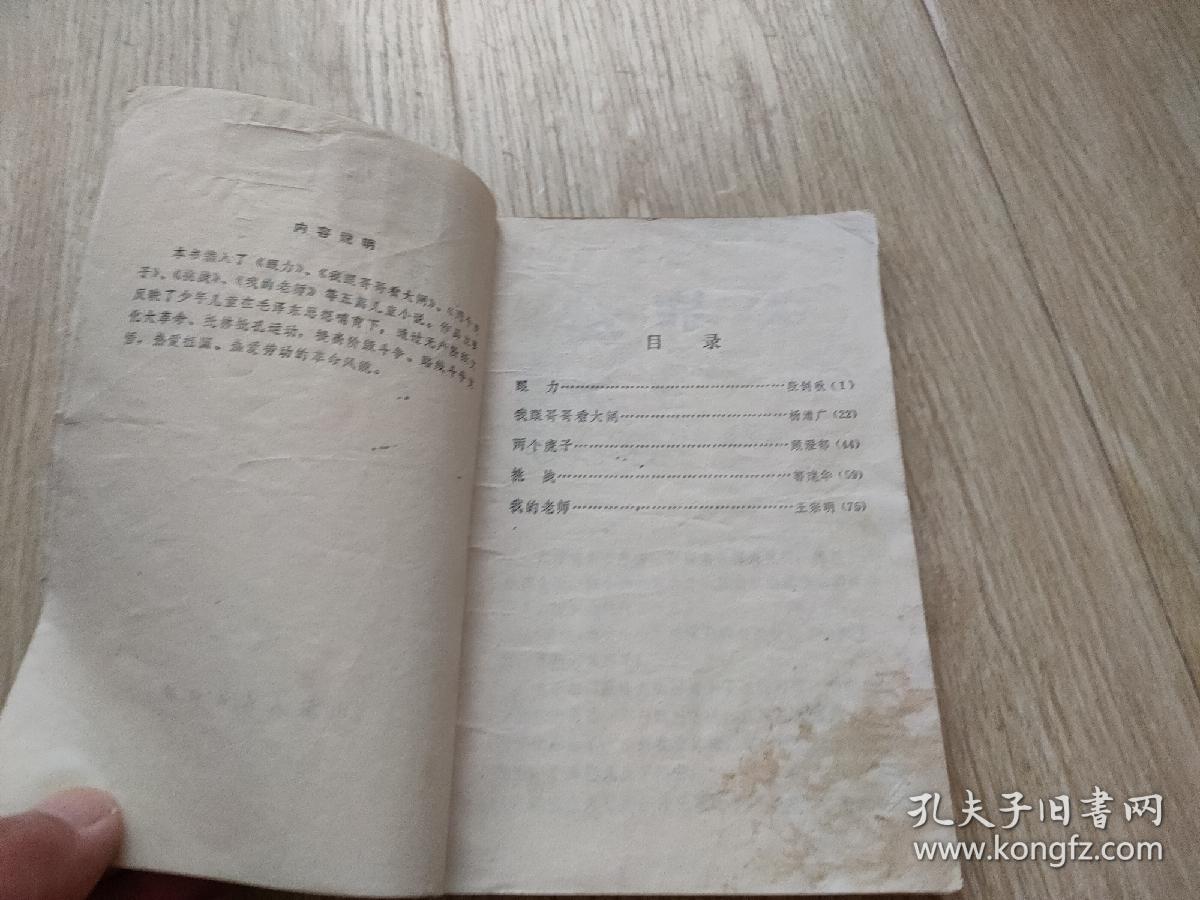 内容说明
本书描入了《眼力》、《我跟哥哥看大闸》、《两个虎
子》、《挑战》、《我的老师》等五篇儿童小说。
反映了少年儿童在毛泽东思想哺育下，通过无产阶级文
化大革命、批林批孔运动，提高阶级斗争、路线斗争觉
悟，热爱祖国、热爱劳动的革命风貌。
目录
眼力(1)
我跟哥哥看大闸 杨 广(22)
两个虎子(44)
挑战(59)
我的老师 王 明(75)
孔夫子旧书网
www.kongfz.com